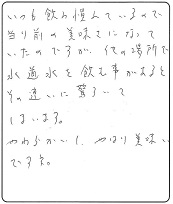 いつも飲み慣んでいるので
当り前の美味てになって
いたのですが、代の場所で
水道水を飲む事があると
その違いに驚いて
しまいます。
やわらかいし、やはり美味い
ですね。